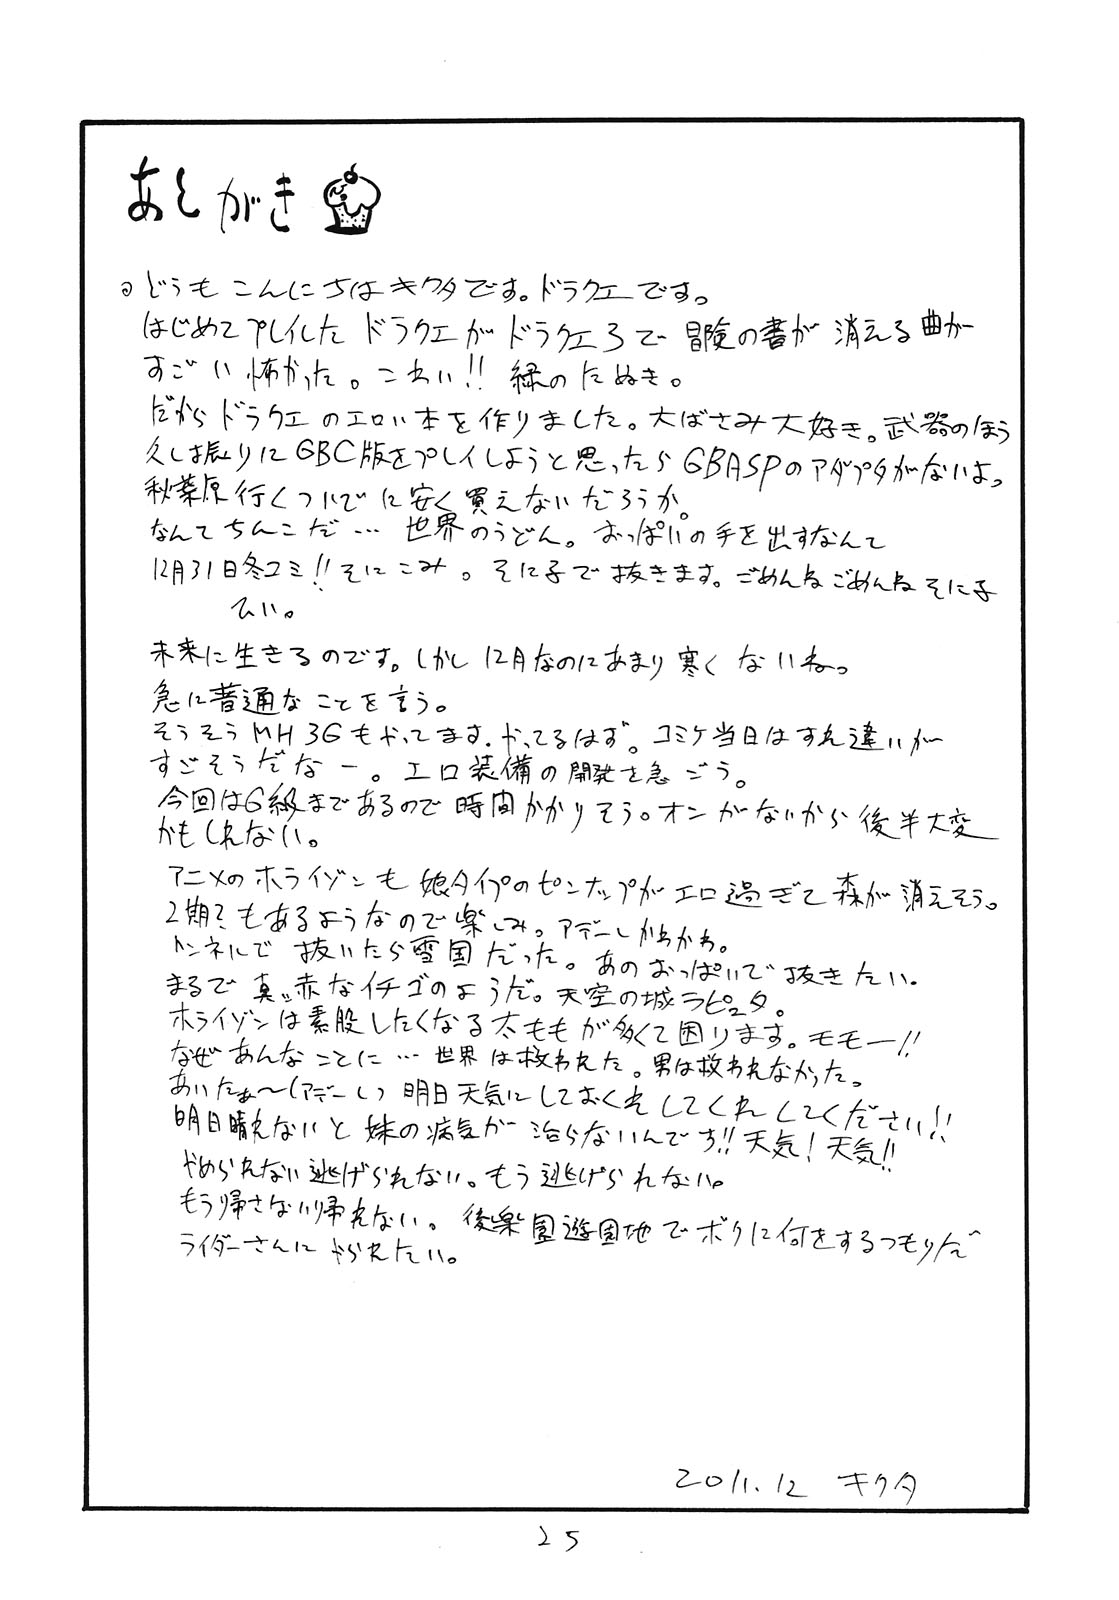 あとがき
どうもこんにちはキクタです。ドラクエです。
はじめてプレイしたドラクエがドラクエ3で冒険の書が消える曲が
すごい怖かった。こわい!!緑のたぬき。
だからドラクエのエロい本を作りました。大ばさみ大好き。武器のほう
久し振りにGBC版をプレイしようと思ったらGBASPのアダプタがないよっ
秋葉原行くついでに安く買えないだろうか。
なんてちんこだ…世界のうどん。おっぱいの手を出すなんて
12月31日冬コミ!!そにこみ。そに子で抜きます。ごめんねごめんねそに子
てい。
未来に生きるのです。しかし12月なのにあまり寒くないねっ
急に普通なことを言う。
そうそうMH3Gもやってます。やってるはず。コミケ当日はすれ違いが
すごそうだなー。エロ装備の開発を急ごう。
今回はG級まであるので時間かかりそう。オンがないから後半大変
かもしれない。
アニメのホライゾンも娘タイプのピンナップがエロ過ぎて森が消えそう。
2期?もあるようなので楽しみ。アデーレかわかわ。
トンネルで抜いたら雪国だった。あのおっぱいで抜きたい。
まるで真っ赤なイチゴのようだ。天空の城ラピュタ。
ホライゾンは素股したくなる太ももが多くて困ります。モモー!!
なぜあんなことに…世界は救われた。男は救われなかった。
あいたぁ〜(アデーレ)明日天気にしておくれしてくれしてください!!
明日晴れないと妹の病気が治らないんです!!天気!天気!!
やめられない逃げられない。もう逃げられない。
もう帰さない帰れない。後楽園遊園地でボクに何をするつもりだ
ライダーさんにやられたい。
2011.12 キクタ
25